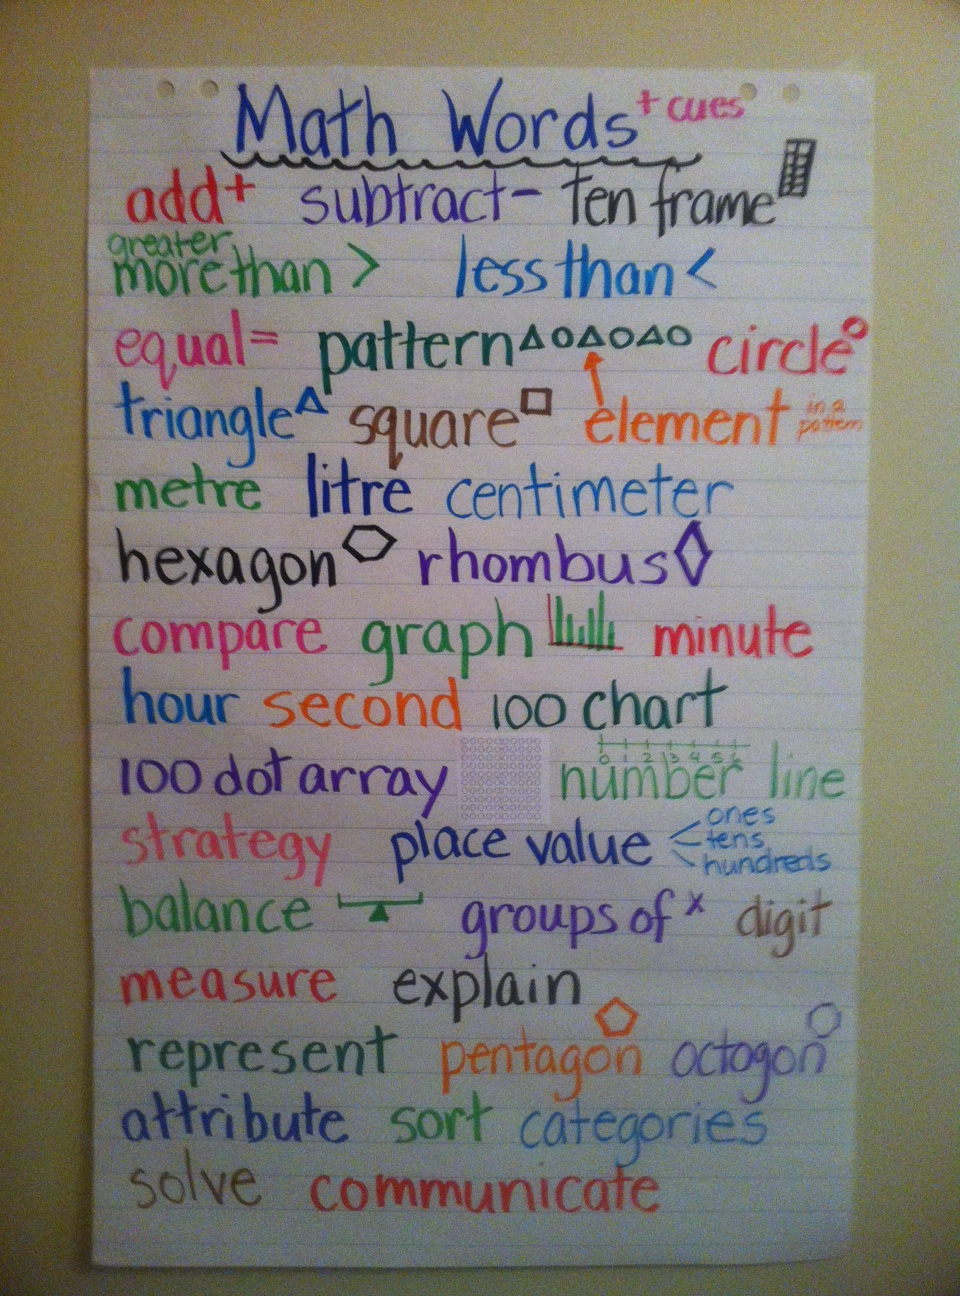 Math Words + cues
add + subtract - ten frame
greater
more than > less than <
equal = pattern circle
triangle square element in a pattern
metre litre centimeter
hexagon rhombus
compare graph minute
hour second 100 chart
0 1 2 3 4 5 6
100 dot array number line
strategy place value < ones
tens
hundreds
balance groups of x digit
measure explain
represent pentagon octogon
attribute sort categories
solve communicate